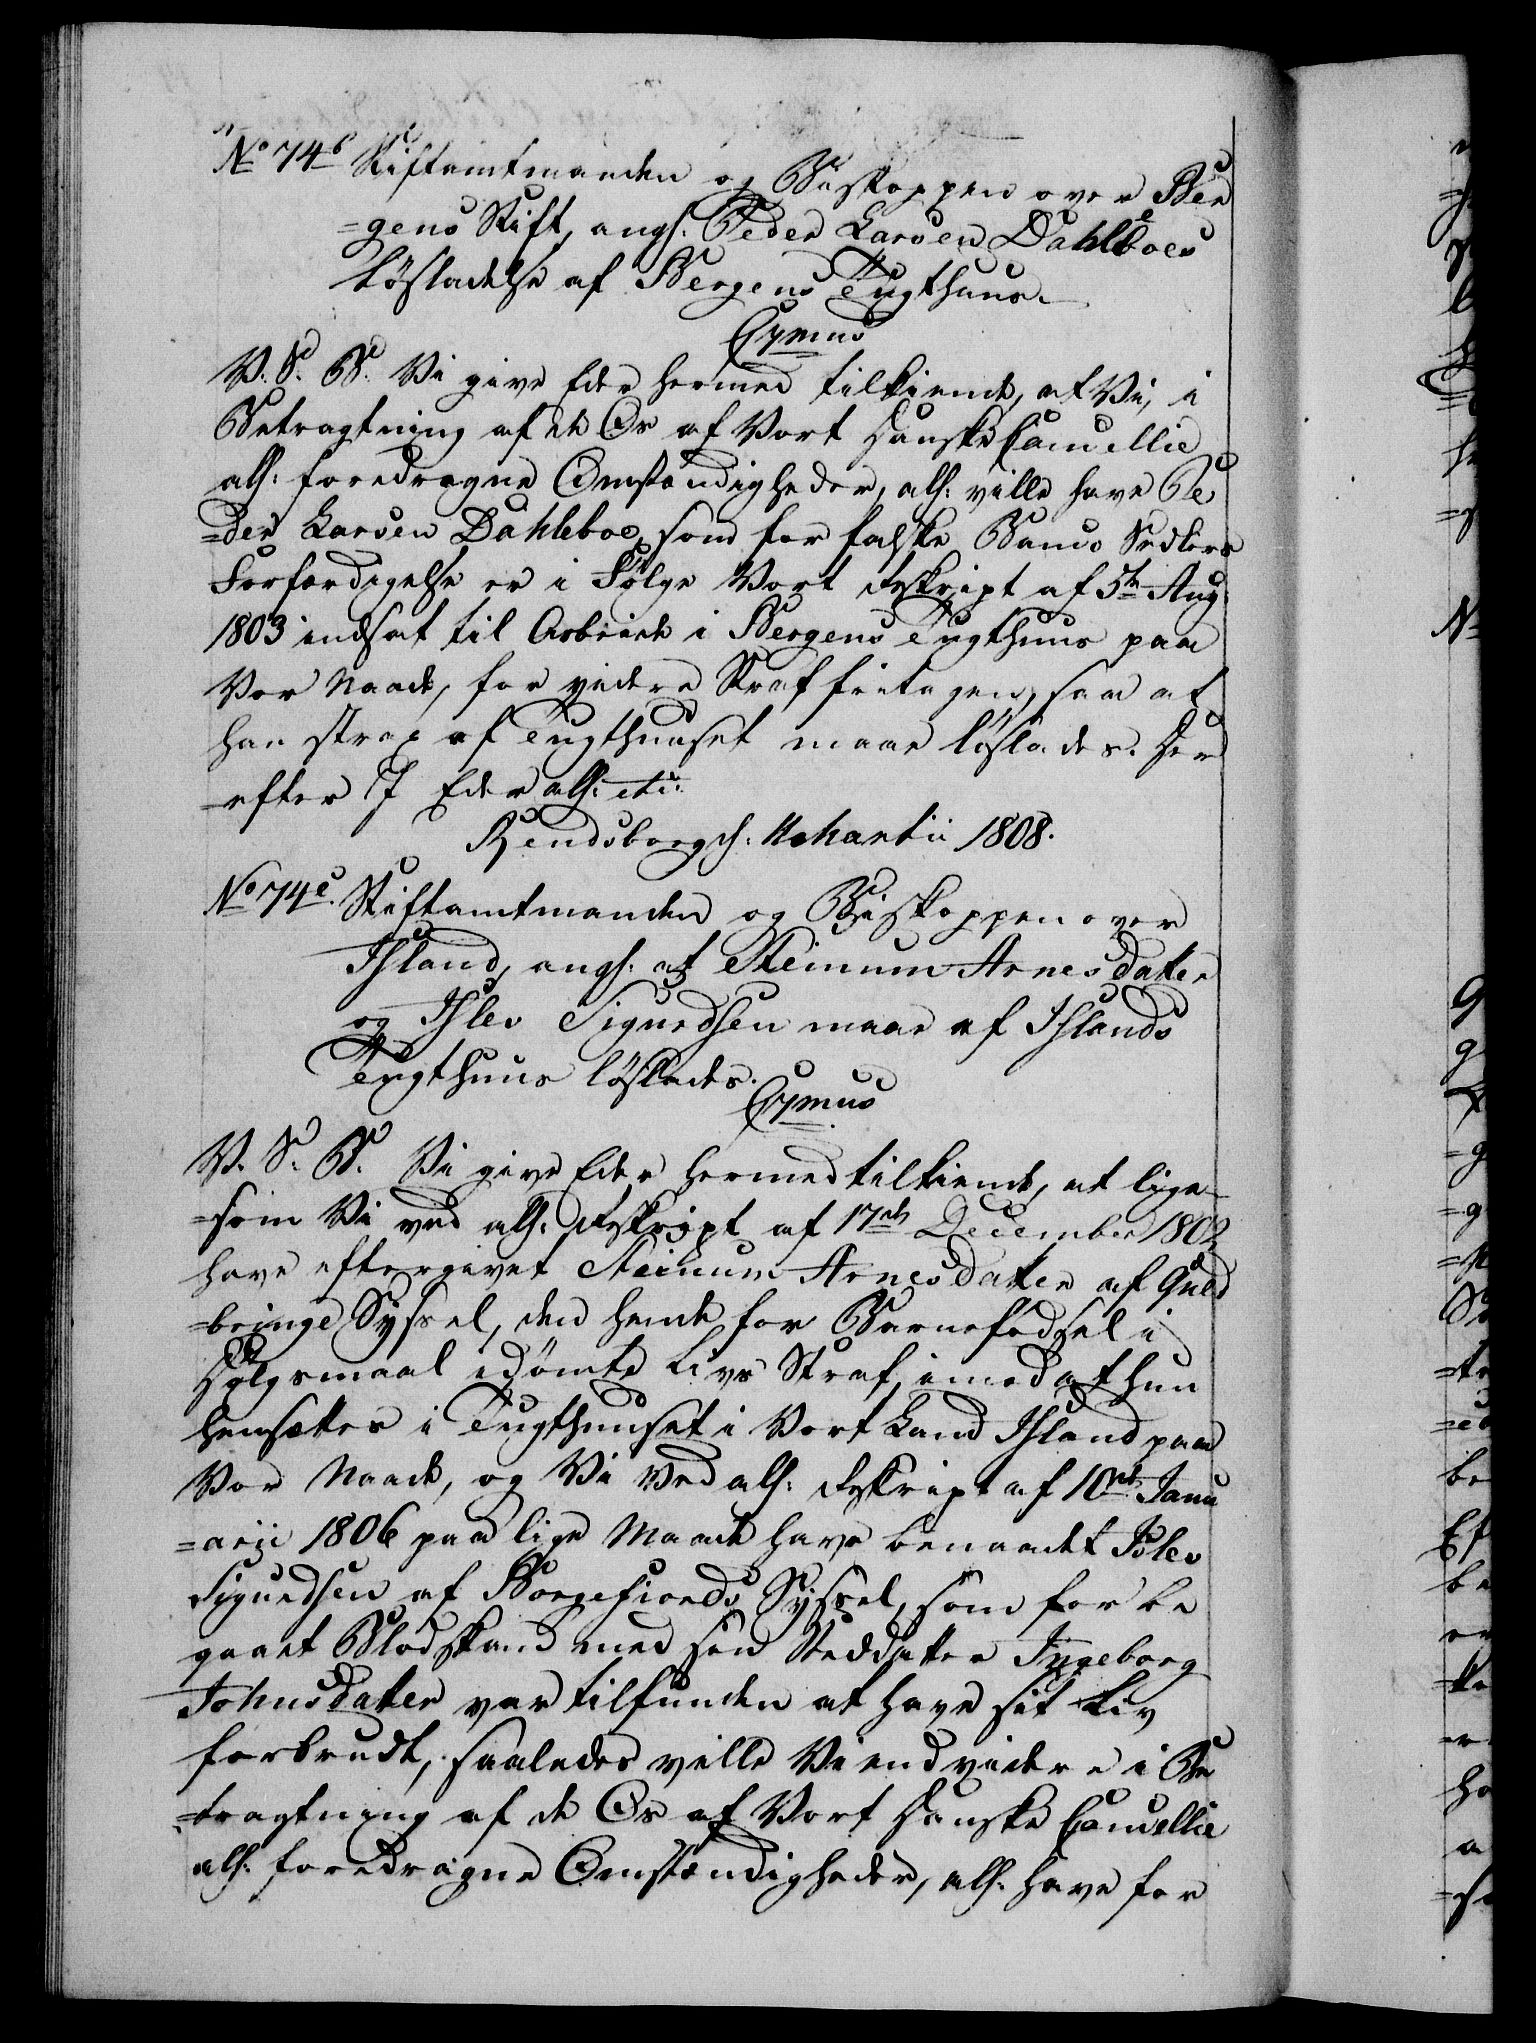 No 74b Stiftamtmanden og Biskoppen over Ber
=gens Stift, angl. Peder Larsen Dahleboes
Løsladelse af Bergens Tugthuus.
C7mus
V. S. B. Vi give Eder hermed tilkiende, at Vi, i
Betragtning af de Os af Vort Danske Cancellie
all: foredragne Omstændigheder, all: ville have Pe
=der Larsen Dahleboe, som for falske Banco Sedlers
Forfærdigelse er i Følge Vort Reskript af 5te Aug:
1803 indsat til Arbeide i Bergens Tugthuus paa
Vor Naade, for videre Straf fritagen, saa at
han strax af Tugthuuset maae løslades. Der
=efter I Eder all: etc:
Rendsborg d: 11 Martii 1808.
No 74c. Stiftamtmanden og Biskoppen over
Island, angl. at Steinum Arnesdatter
og Islev Sigurdsen maae af Islands
Tugthuus løslades.
C7mus
V. S. B. Vi give Eder hermed tilkiende, at lige
=som Vi ved all: Reskript af 17de December 1802
have eftergivet Steinum Arnesdatter af Guld
=bringe Syssel, den hende for Barnefødsel i
Dølgsmaal idømte Livs Straf, imod at hun
hensættes i Tugthuuset i Vort Land Island paa
Vor Naade, og Vi ved all: Reskript af 10de Janu
=arii 1806 paa lige Maade have benaadet Islev
Sigurdsen af Borgefiords Syssel, som for be
gaaet Blodskam med sin Steddatter Ingeborg
Johnsdatter var tilfunden at have sit Liv
forbrudt, saaledes ville Vi endvidere i Be
=tragtning af de Os af Vort Danske Cancellie
all: foredragne Omstændigheder, all: have for